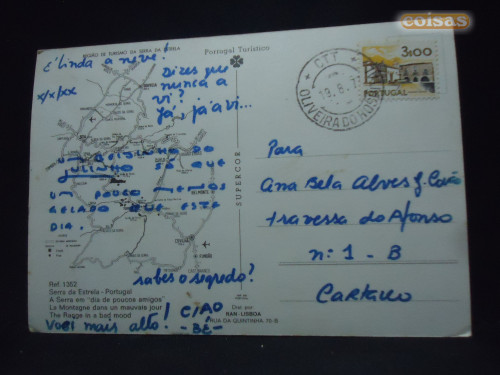 coisas
REGIÃO DE TURISMO DA SERRA DA ESTRELA
Portugal Turístico
É linda a neve!
x/x/xx
Dizes que
nunca a
vi?
Já, já a vi...
UM BEIJINHO DO
JULINHO SÓ QUE
UM POUCO MENOS
GELADO QUE ESTE
DIA.
sabes o segredo?
Ref. 1352
Serra da Estrela - Portugal
A Serra em "dia de poucos amigos"
La Montagne dans un mauvais jour
The Ragge in a bad mood
Voei mais alto!
! CIAO
- BÉ -
SUPERCOR
Dist. por
RAN - LISBOA
RUA DA QUINTINHA, 70-B
CTT
OLIVEIRA DO HOS
3$00
PORTUGAL
Para
Ana Bela Alves
Travessa do Afonso
nº 1 - B
Cartaxo